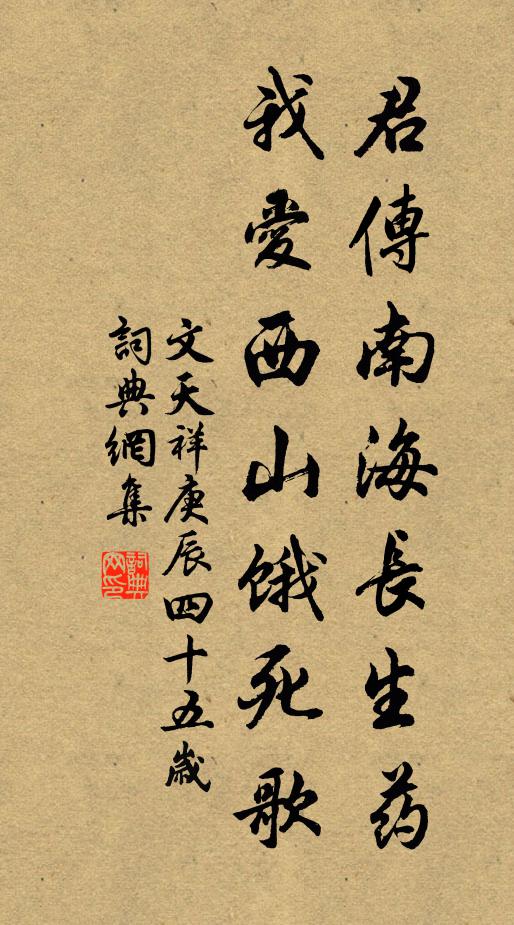 君傳南海長生药
我愛西山餓死歌
文天祥庚辰四十五歲
詞典網集
詞典网印